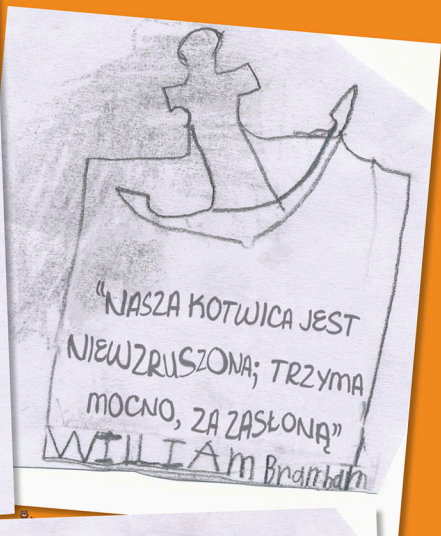 "NASZA KOTWICA JEST
NIEWZRUSZONA; TRZYMA
MOCNO, ZA ZASŁONĄ"
WILLIAM Branham